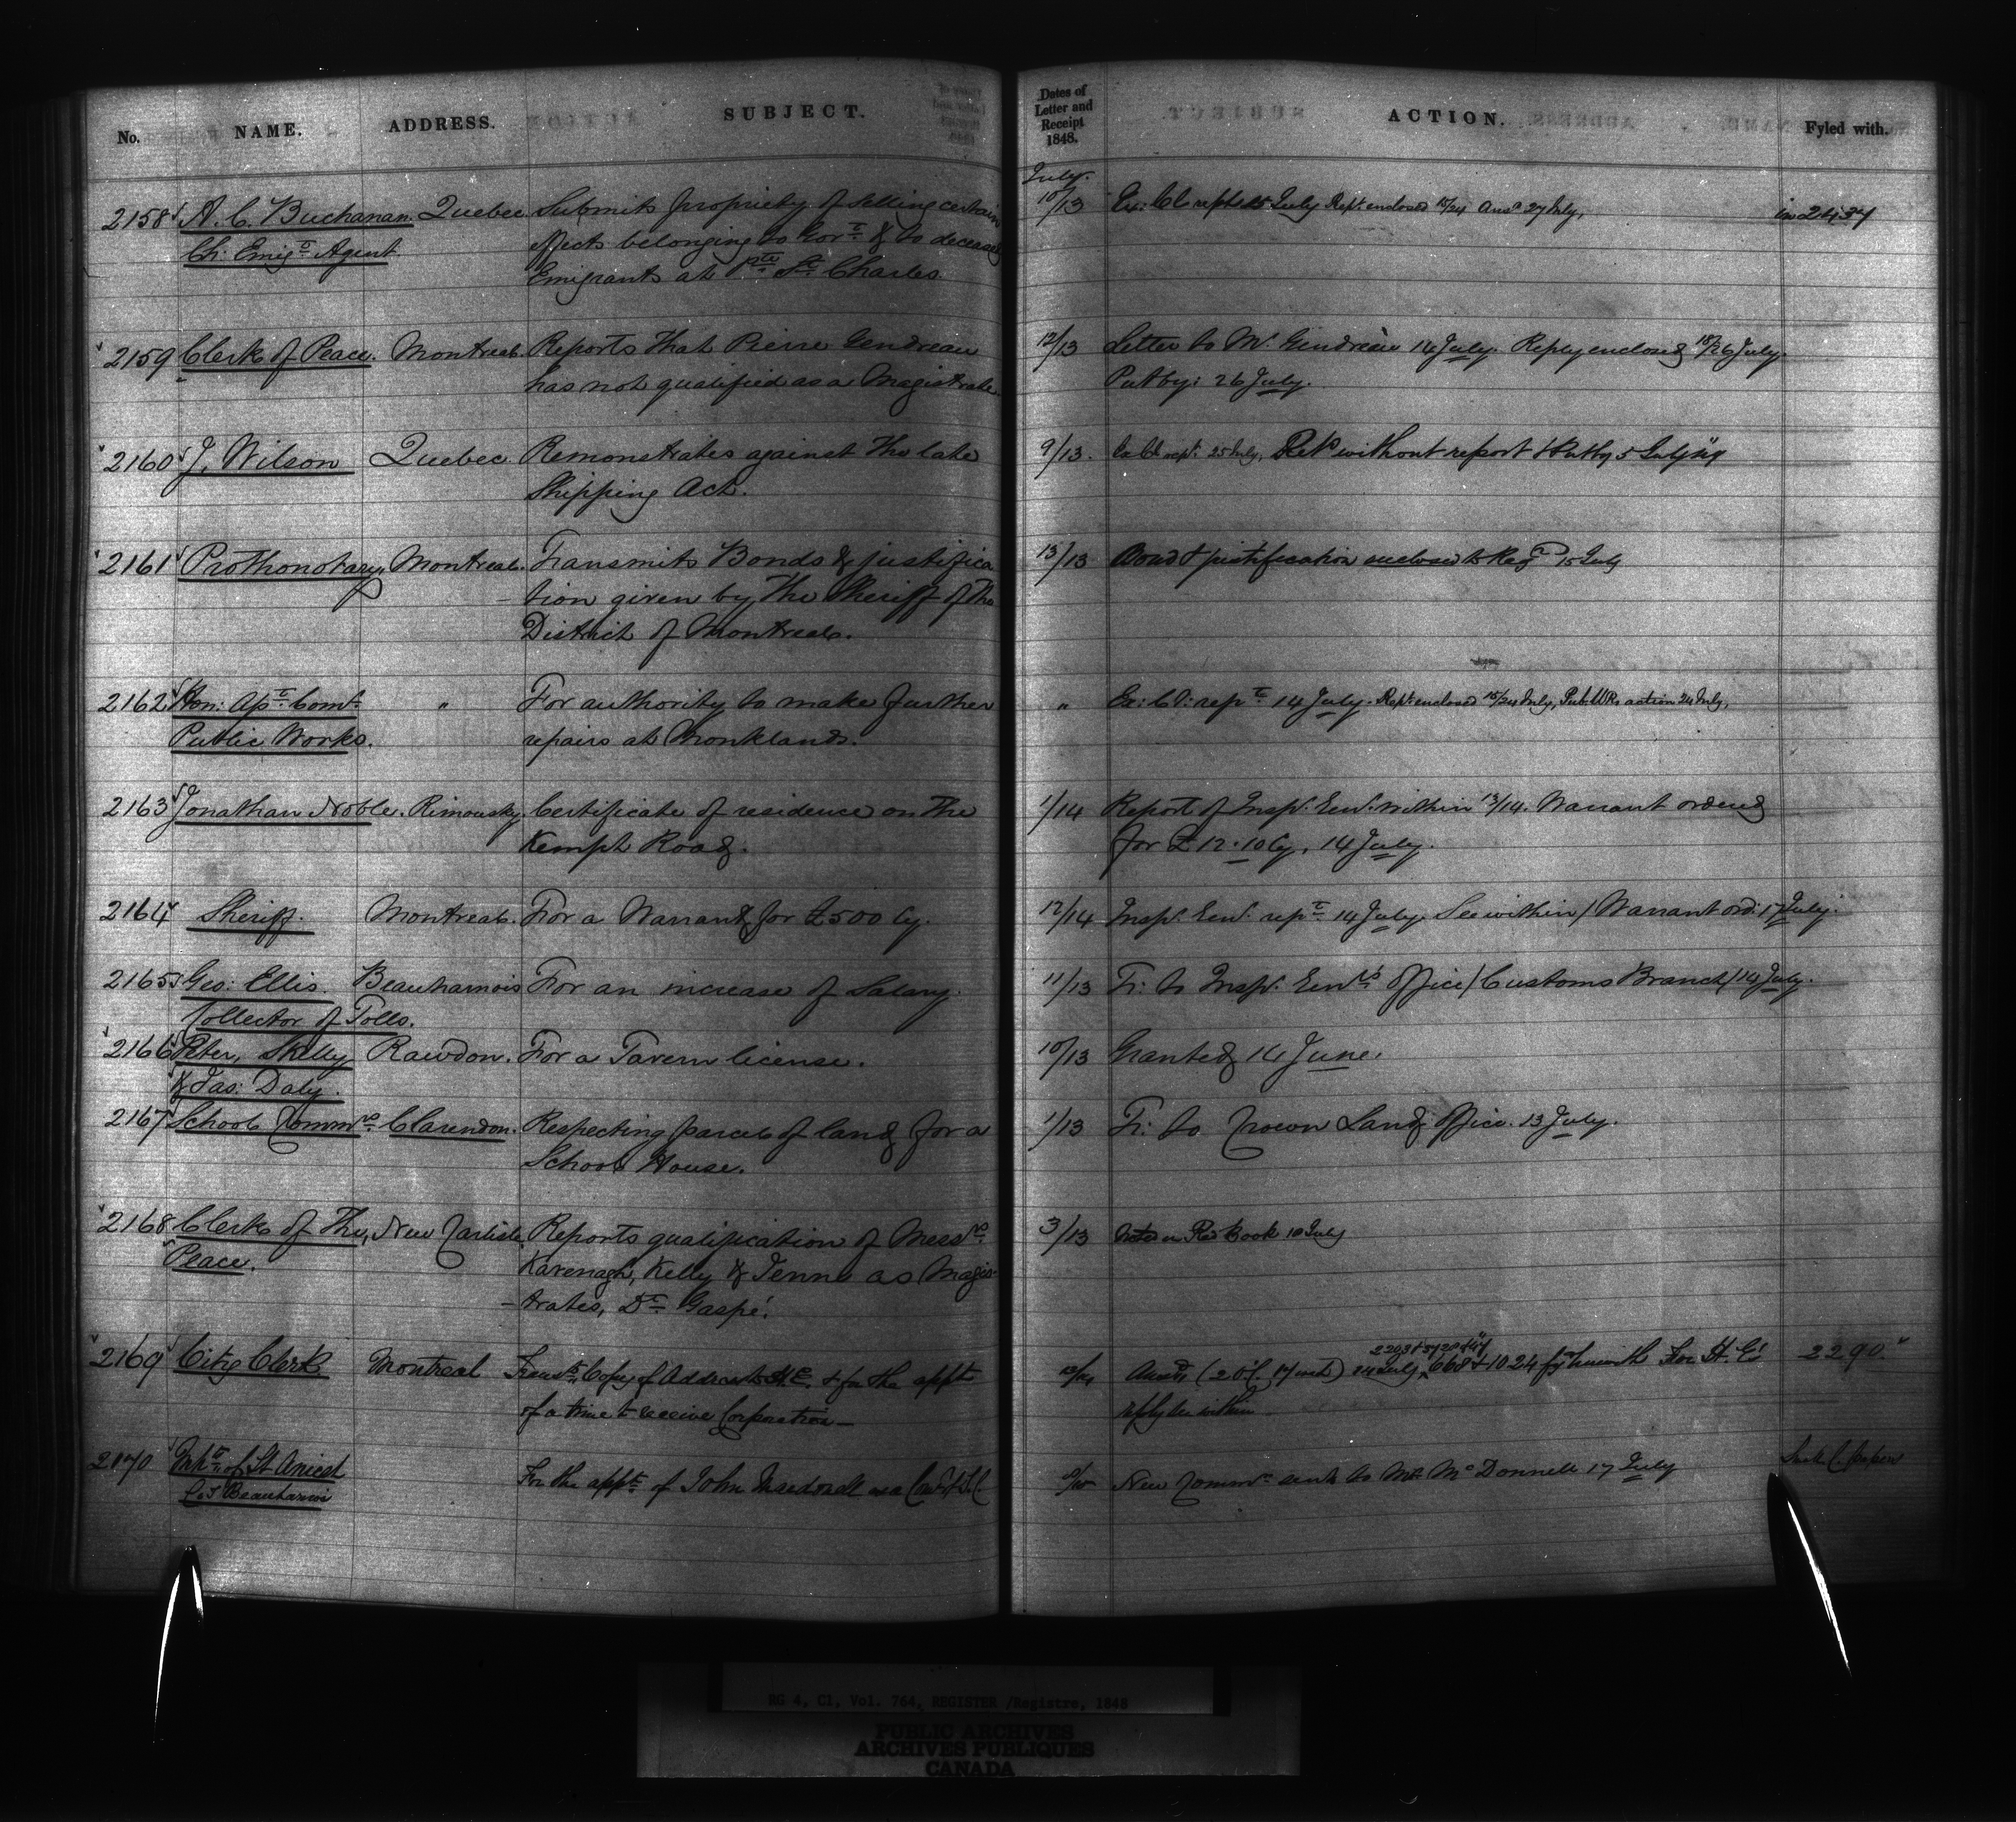 No. NAME. ADDRESS. SUBJECT. Dates of Letter and Receipt 1848. ACTION. Fyled with.
July.
2158 A. C. Buchanan. Quebec. Submits propriety of selling certain 10/13 Ex: Cl rept 15 July Rept enclosed 15/24 Ansd 27 July, in 2437
Ch: Emigt Agent effects belonging to Govt & to deceased
Emigrants at Pte St Charles.
2159 Clerk of Peace. Montreal. Reports that Pierre Gendreau 12/13 Letter to Mr. Gendreau 14 July. Reply enclosed 18/26 July.
has not qualified as a Magistrate. Put by: 26 July.
2160 J. Wilson Quebec. Remonstrates against the late 9/13. Retd without report & Put by 5 July
Shipping Act.
2161 Prothonotary. Montreal. Transmits Bonds & justifica 13/13 Bond & justification enclosed to Regr 15 July
-tion given by the Sheriff of the
District of Montreal.
2162 Hon: Apt: Comr. " For authority to make further " Ex: Cl: rept 14 July. Rept enclosed 15/24 July, Pub. Wks action 24 July,
Public Works. repairs at Monklands.
2163 Jonathan Noble. Rimousky. Certificate of residence on the 1/14 Report of Insp. Genl. within 13/14. Warrant ordered
Kempt Road. for £12.10 Cy. 14 July.
2164 Sheriff. Montreal. For a Warrant for £500 Cy. 12/14 Insp. Genl. rept 14 July. See within / Warrant ord: 17 July.
2165 Geo: Ellis. Beauharnois For an increase of Salary. 11/13 Tr: to Insp. Genl's Office / Customs Branch / 14 July.
Collector of Tolls.
2166 Peter, Skelly Rawdon. For a Tavern license. 10/13 Granted 14 June.
& Jas: Daly.
2167 School Commrs. Clarendon. Respecting parcel of land for a 1/13 Tr: to Crown Land Office. 13 July.
School House.
2168 Clerk of the, New Carlisle. Reports qualification of Messrs. 3/13 Noted in Red Book 10 July
Peace. Kavenagh, Kelly & Jenne as Magis
-trates, Dt Gaspé.
2169 City Clerk. Montreal Transts Copy of Address to H.E. & for the appt 13/14 Ansd 24 July, 668 & 1024 for H.E's 2290.
of a time to receive Corporation— reply see within
2170 Inhts of St Anicet For the appt of John Macdonell as a 8/15 New Commn. sent to Mr. McDonnell 17 July
Co. Beauharnois
RG 4, C1, Vol. 764, REGISTER /Registre, 1848
PUBLIC ARCHIVES
ARCHIVES PUBLIQUES
CANADA